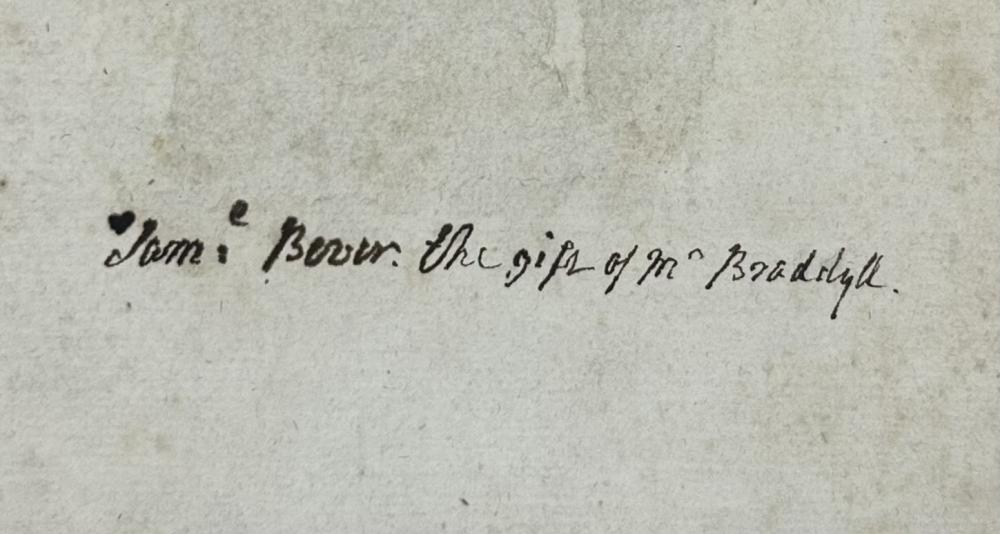 Sam:ᵉ Bever. the gift of Mʳ Braddyll.